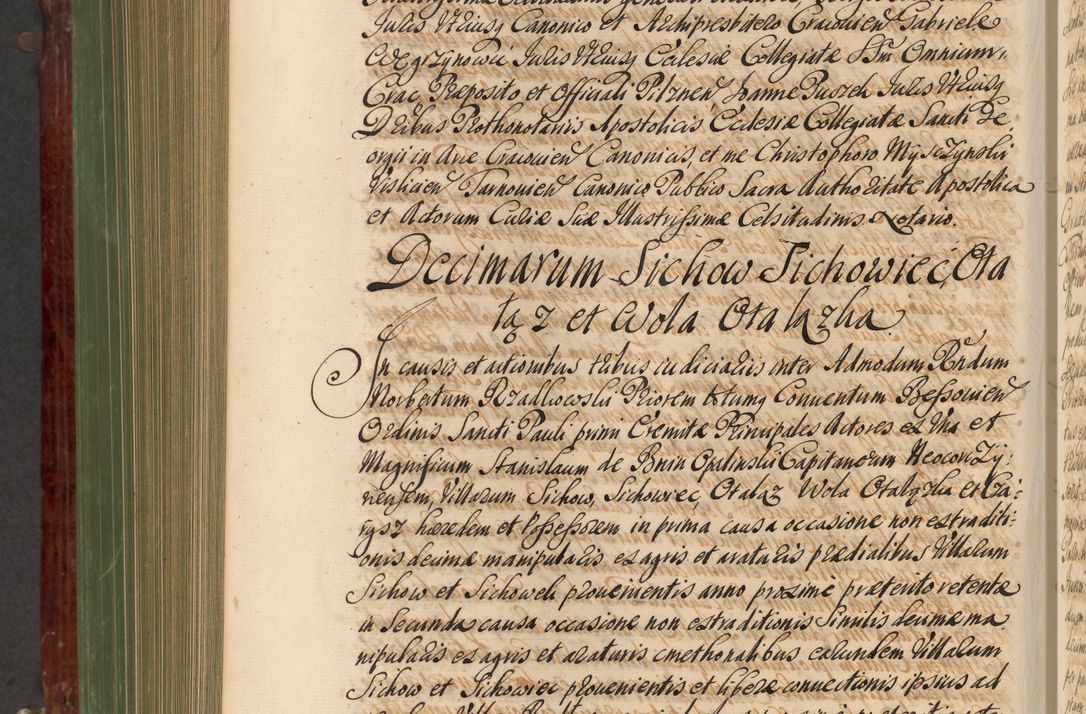 Juris Vtriusq Canonico et Archipresbitero Cracouien Gabriele
Wegrzynowic Juris Vtriusq Eclesiæ Collegiatæ SSm Omnium
Crac Præposito et Officiali Pilznen Joanne Puozch Juris Vtriusq
Dribus Prothonotariis Apostolicis Eclesiæ Collegiatæ Sancti Ge
orgii in Arce Cracouien Canonicis, et me Christophoro Mysczynski
Vislicien Tarnouien Canonico Publico Sacra Authoritate Apostolica
et Actorum Curiæ Suæ Illustrissimæ Celsitudinis Notario.
Decimarum Sichow Sichowiec, Ota
łąz et Wola Otalazka
In causis et actionibus tribus iudiciariis inter Admodum Rndum
Norbertum Rzadkowski Priorem totumq Conuentum Bessouien
Ordinis Sancti Pauli primi Eremitæ Principales Actores ex Vna et
Magnificum Stanislaum de Bnin Opalinski Capitaneum Neocorczy:
nensem, Villarum Sichow, Sichowiec, Otaląz Wola Otalązka et
hæredem et Possessorem in prima causa occasione non extraditi:
onis decimæ manipularis ex agris et araturis prædialibus Villarum
Sichow et Sichowek prouenientis anno proxime præterito retentæ
in Secunda causa occasione non extraditionis Similis decimæ ma
nipularis ex agris et araturis cmethonalibus earundem Villarum
Sichow et Sichowiec prouenientis et liberæ conuectionis ipsius ad